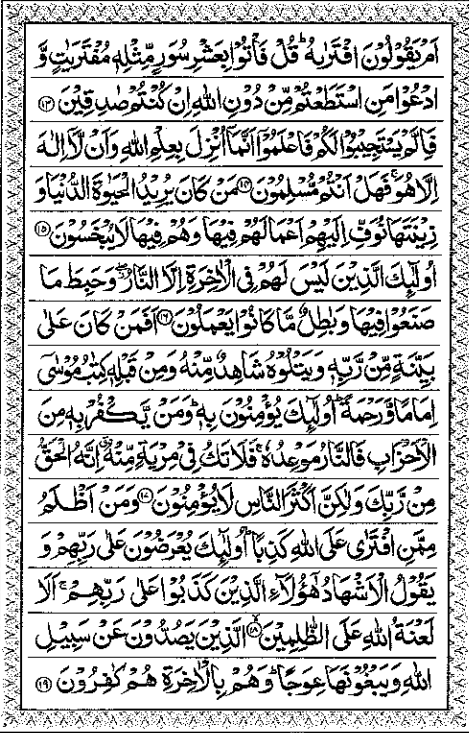 اَمْ یَقُوْلُوْنَ افْتَرٰىهُ ؕ قُلْ فَاْتُوْا بِعَشْرِ سُوَرٍ مِّثْلِهٖ مُفْتَرَیٰتٍ وَّ
ادْعُوْا مَنِ اسْتَطَعْتُمْ مِّنْ دُوْنِ اللّٰهِ اِنْ كُنْتُمْ صٰدِقِیْنَ ۝۱۳
فَاِلَّمْ یَسْتَجِیْبُوْا لَكُمْ فَاعْلَمُوْۤا اَنَّمَاۤ اُنْزِلَ بِعِلْمِ اللّٰهِ وَاَنْ لَّاۤ اِلٰهَ
اِلَّا هُوَ ۚ فَهَلْ اَنْتُمْ مُّسْلِمُوْنَ ۝۱۴ مَنْ كَانَ یُرِیْدُ الْحَیٰوةَ الدُّنْیَا وَ
زِیْنَتَهَا نُوَفِّ اِلَیْهِمْ اَعْمَالَهُمْ فِیْهَا وَهُمْ فِیْهَا لَا یُبْخَسُوْنَ ۝۱۵
اُولٰٓىِٕكَ الَّذِیْنَ لَیْسَ لَهُمْ فِی الْاٰخِرَةِ اِلَّا النَّارُ ۖ وَحَبِطَ مَا
صَنَعُوْا فِیْهَا وَبٰطِلٌ مَّا كَانُوْا یَعْمَلُوْنَ ۝۱۶ اَفَمَنْ كَانَ عَلٰی
بَیِّنَةٍ مِّنْ رَّبِّهٖ وَیَتْلُوْهُ شَاهِدٌ مِّنْهُ وَمِنْ قَبْلِهٖ كِتٰبُ مُوْسٰۤی
اِمَامًا وَّرَحْمَةً ؕ اُولٰٓىِٕكَ یُؤْمِنُوْنَ بِهٖ ؕ وَمَنْ یَّكْفُرْ بِهٖ مِنَ
الْاَحْزَابِ فَالنَّارُ مَوْعِدُهٗ ۚ فَلَا تَكُ فِیْ مِرْیَةٍ مِّنْهُ ۗ اِنَّهُ الْحَقُّ
مِنْ رَّبِّكَ وَلٰكِنَّ اَكْثَرَ النَّاسِ لَا یُؤْمِنُوْنَ ۝۱۷ وَمَنْ اَظْلَمُ
مِمَّنِ افْتَرٰی عَلَی اللّٰهِ كَذِبًا ؕ اُولٰٓىِٕكَ یُعْرَضُوْنَ عَلٰی رَبِّهِمْ وَ
یَقُوْلُ الْاَشْهَادُ هٰۤؤُلَآءِ الَّذِیْنَ كَذَبُوْا عَلٰی رَبِّهِمْ ۚ اَلَا
لَعْنَةُ اللّٰهِ عَلَی الظّٰلِمِیْنَ ۝۱۸ الَّذِیْنَ یَصُدُّوْنَ عَنْ سَبِیْلِ
اللّٰهِ وَیَبْغُوْنَهَا عِوَجًا ؕ وَهُمْ بِالْاٰخِرَةِ هُمْ كٰفِرُوْنَ ۝۱۹